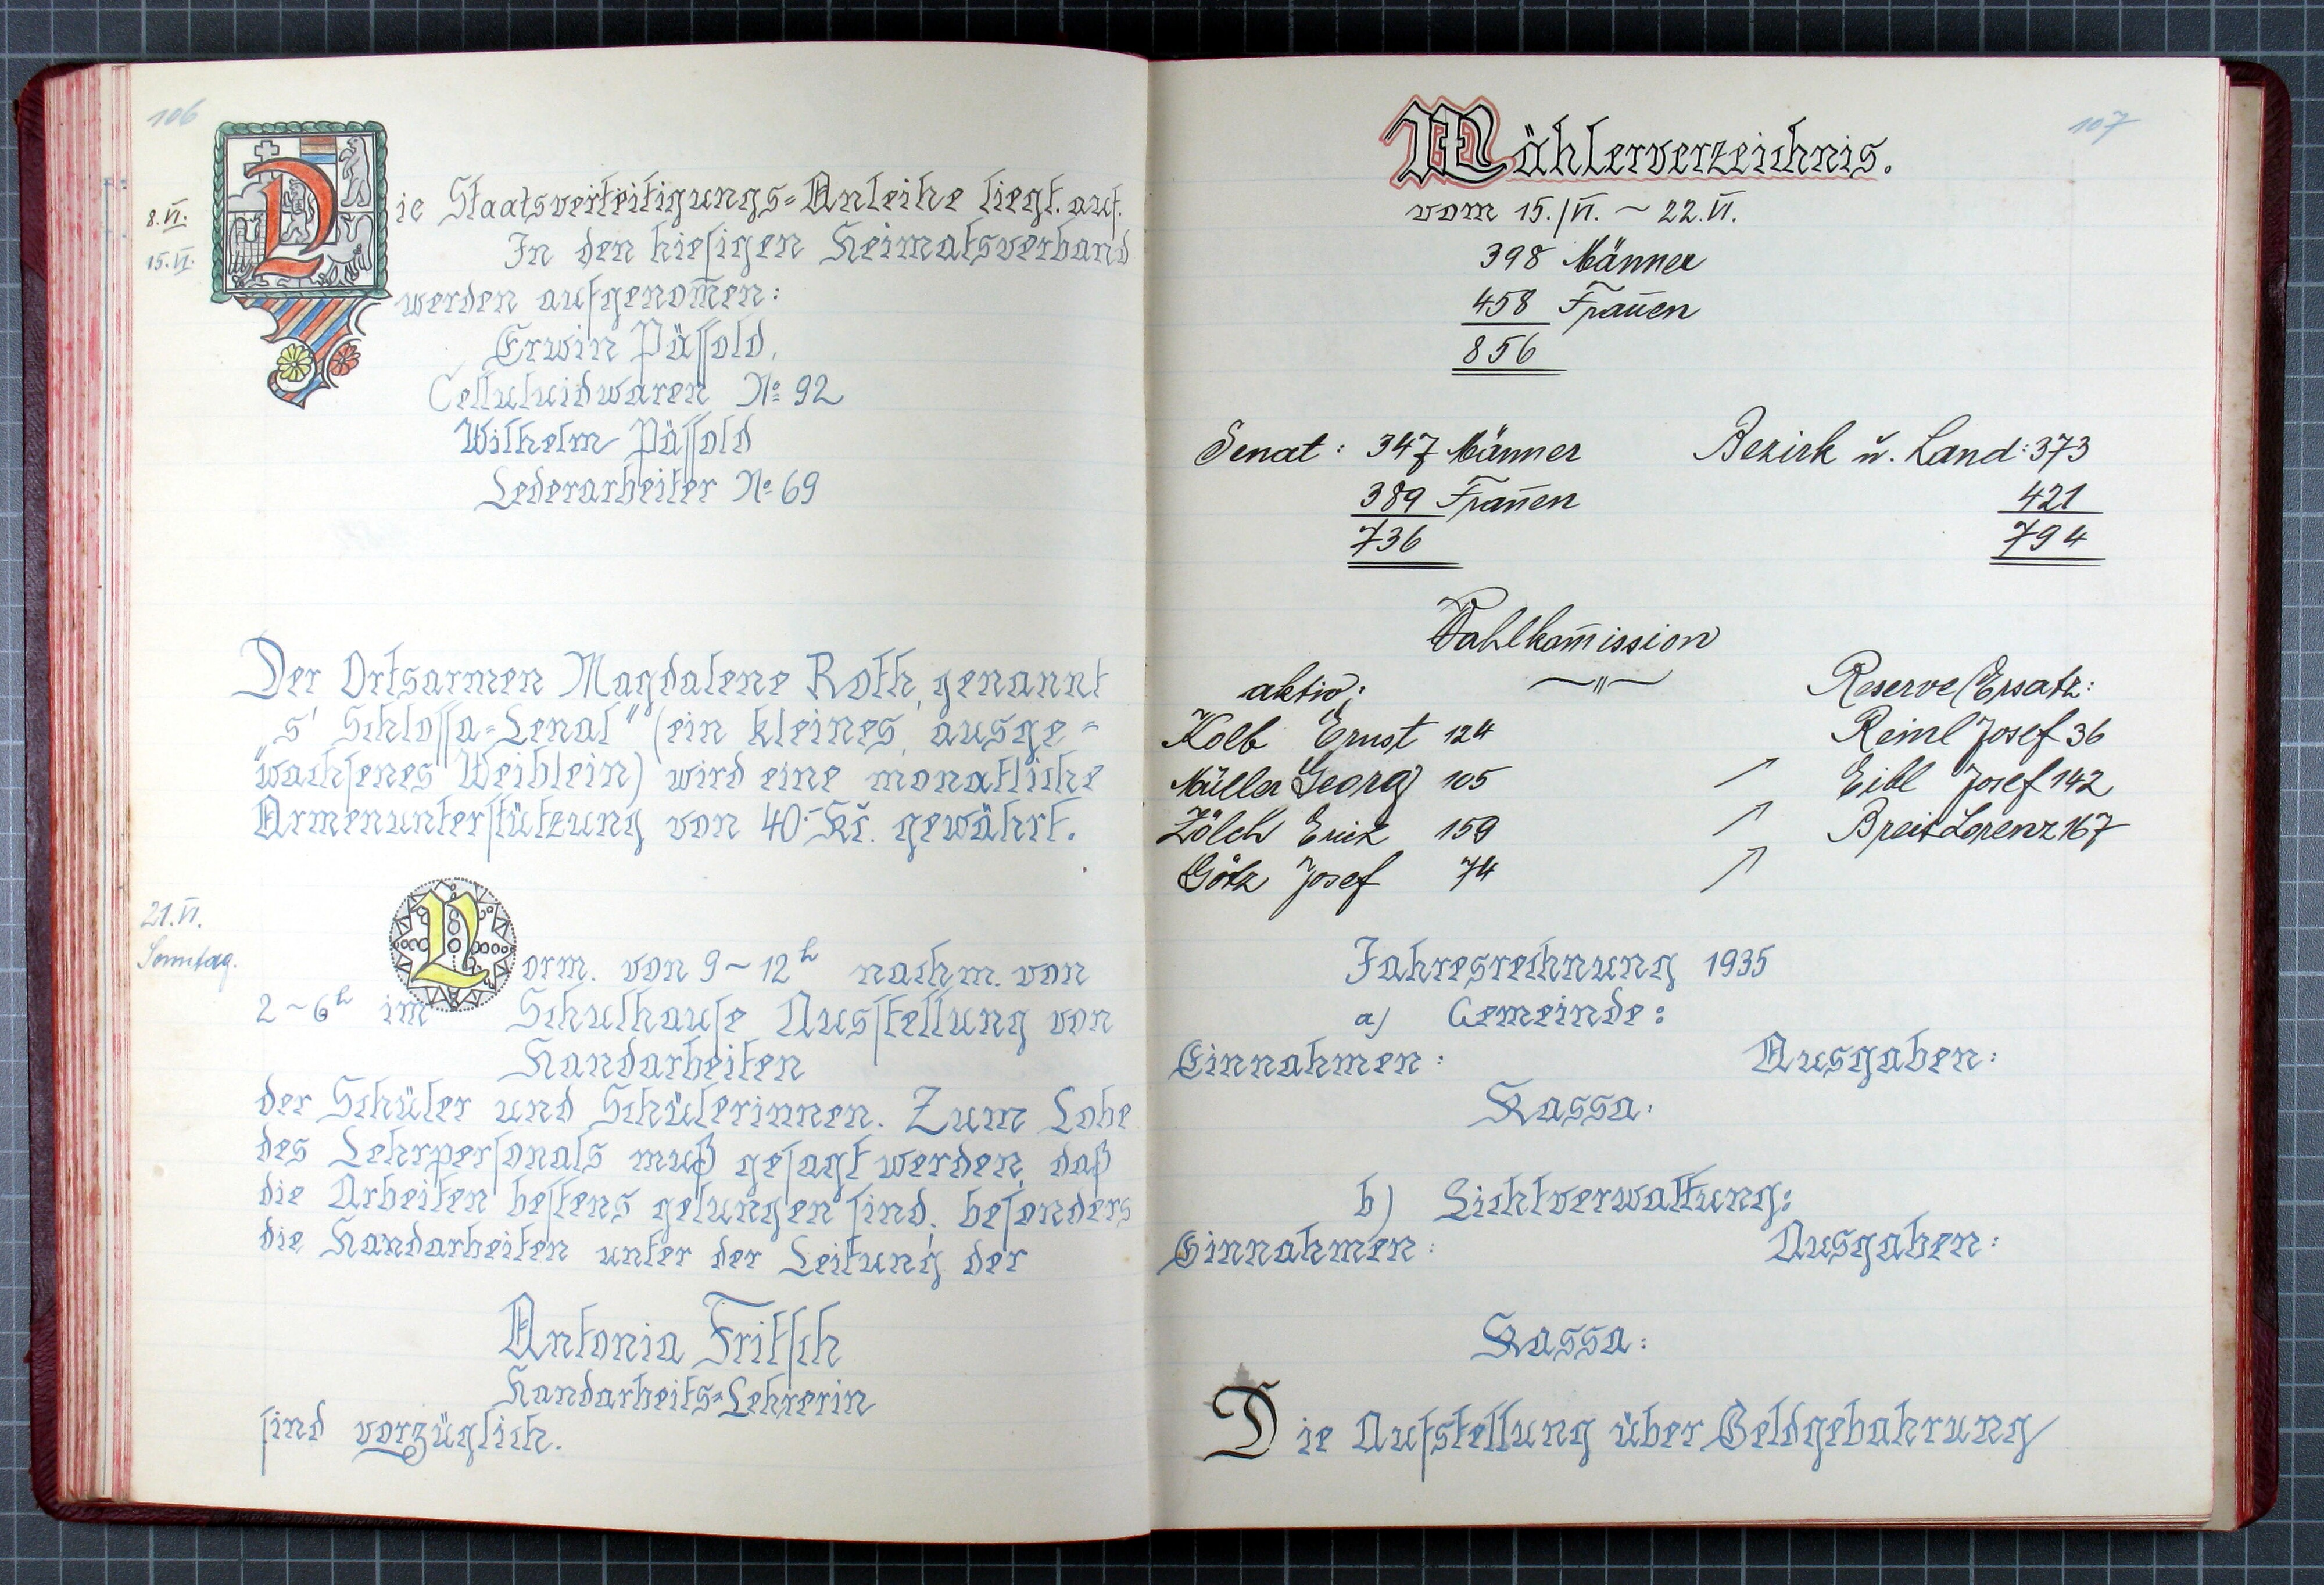 106
8.VI.
Die Staatsverteitigungs=Anleihe liegt auf.
15.VI.
In den hiesigen Heimatsverband
werden aufgenom̅en:
Erwin Pässold,
Celluluidwaren No 92
Wilhelm Pässold
Lederarbeiter No 69
Der Ortsarmen Magdalene Roth, genannt
„s' Schlossa=Lenal" (ein kleines, ausge=
wachsenes Weiblein) wird eine monatliche
Armenunterstützung von 40.- Kč. gewährt.
21.VI.
Sonntag.
Vorm. von 9~12h nachm. von
2~6h im Schulhause Ausstellung von
Handarbeiten
der Schüler und Schülerinnen. Zum Lobe
des Lehrpersonals muß gesagt werden, daß
die Arbeiten bestens gelungen sind, besonders
die Handarbeiten unter der Leitung der
Antonia Fritsch
Handarbeits=Lehrerin
sind vorzüglich.
107
Wählerverzeichnis.
vom 15./VI. ~ 22.VI.
398 Männer
458 Frauen
856
Senat: 347 Männer Bezirk u. Land: 373
389 Frauen 421
736 794
Wahlkom̅ission
aktiv: Reserve/Ersatz:
Kolb Ernst 124 Reinl Josef 36
Müller Georg 105 Eibl Josef 142
Zölch Erick 159 Breit Lorenz 167
Götz Josef 74
Jahresrechnung 1935
a) Gemeinde:
Einnahmen: Ausgaben:
Kassa:
b) Lichtverwaltung:
Einnahmen: Ausgaben:
Kassa:
Die Aufstellung über Geldgebahrung